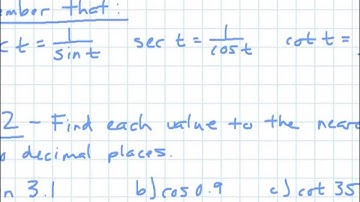 that:
t = 1/sin t sec t = 1/cos t cot t =
2 - Find each value to the
decimal places.
3.1 b) cos 0.9 c) cot 35